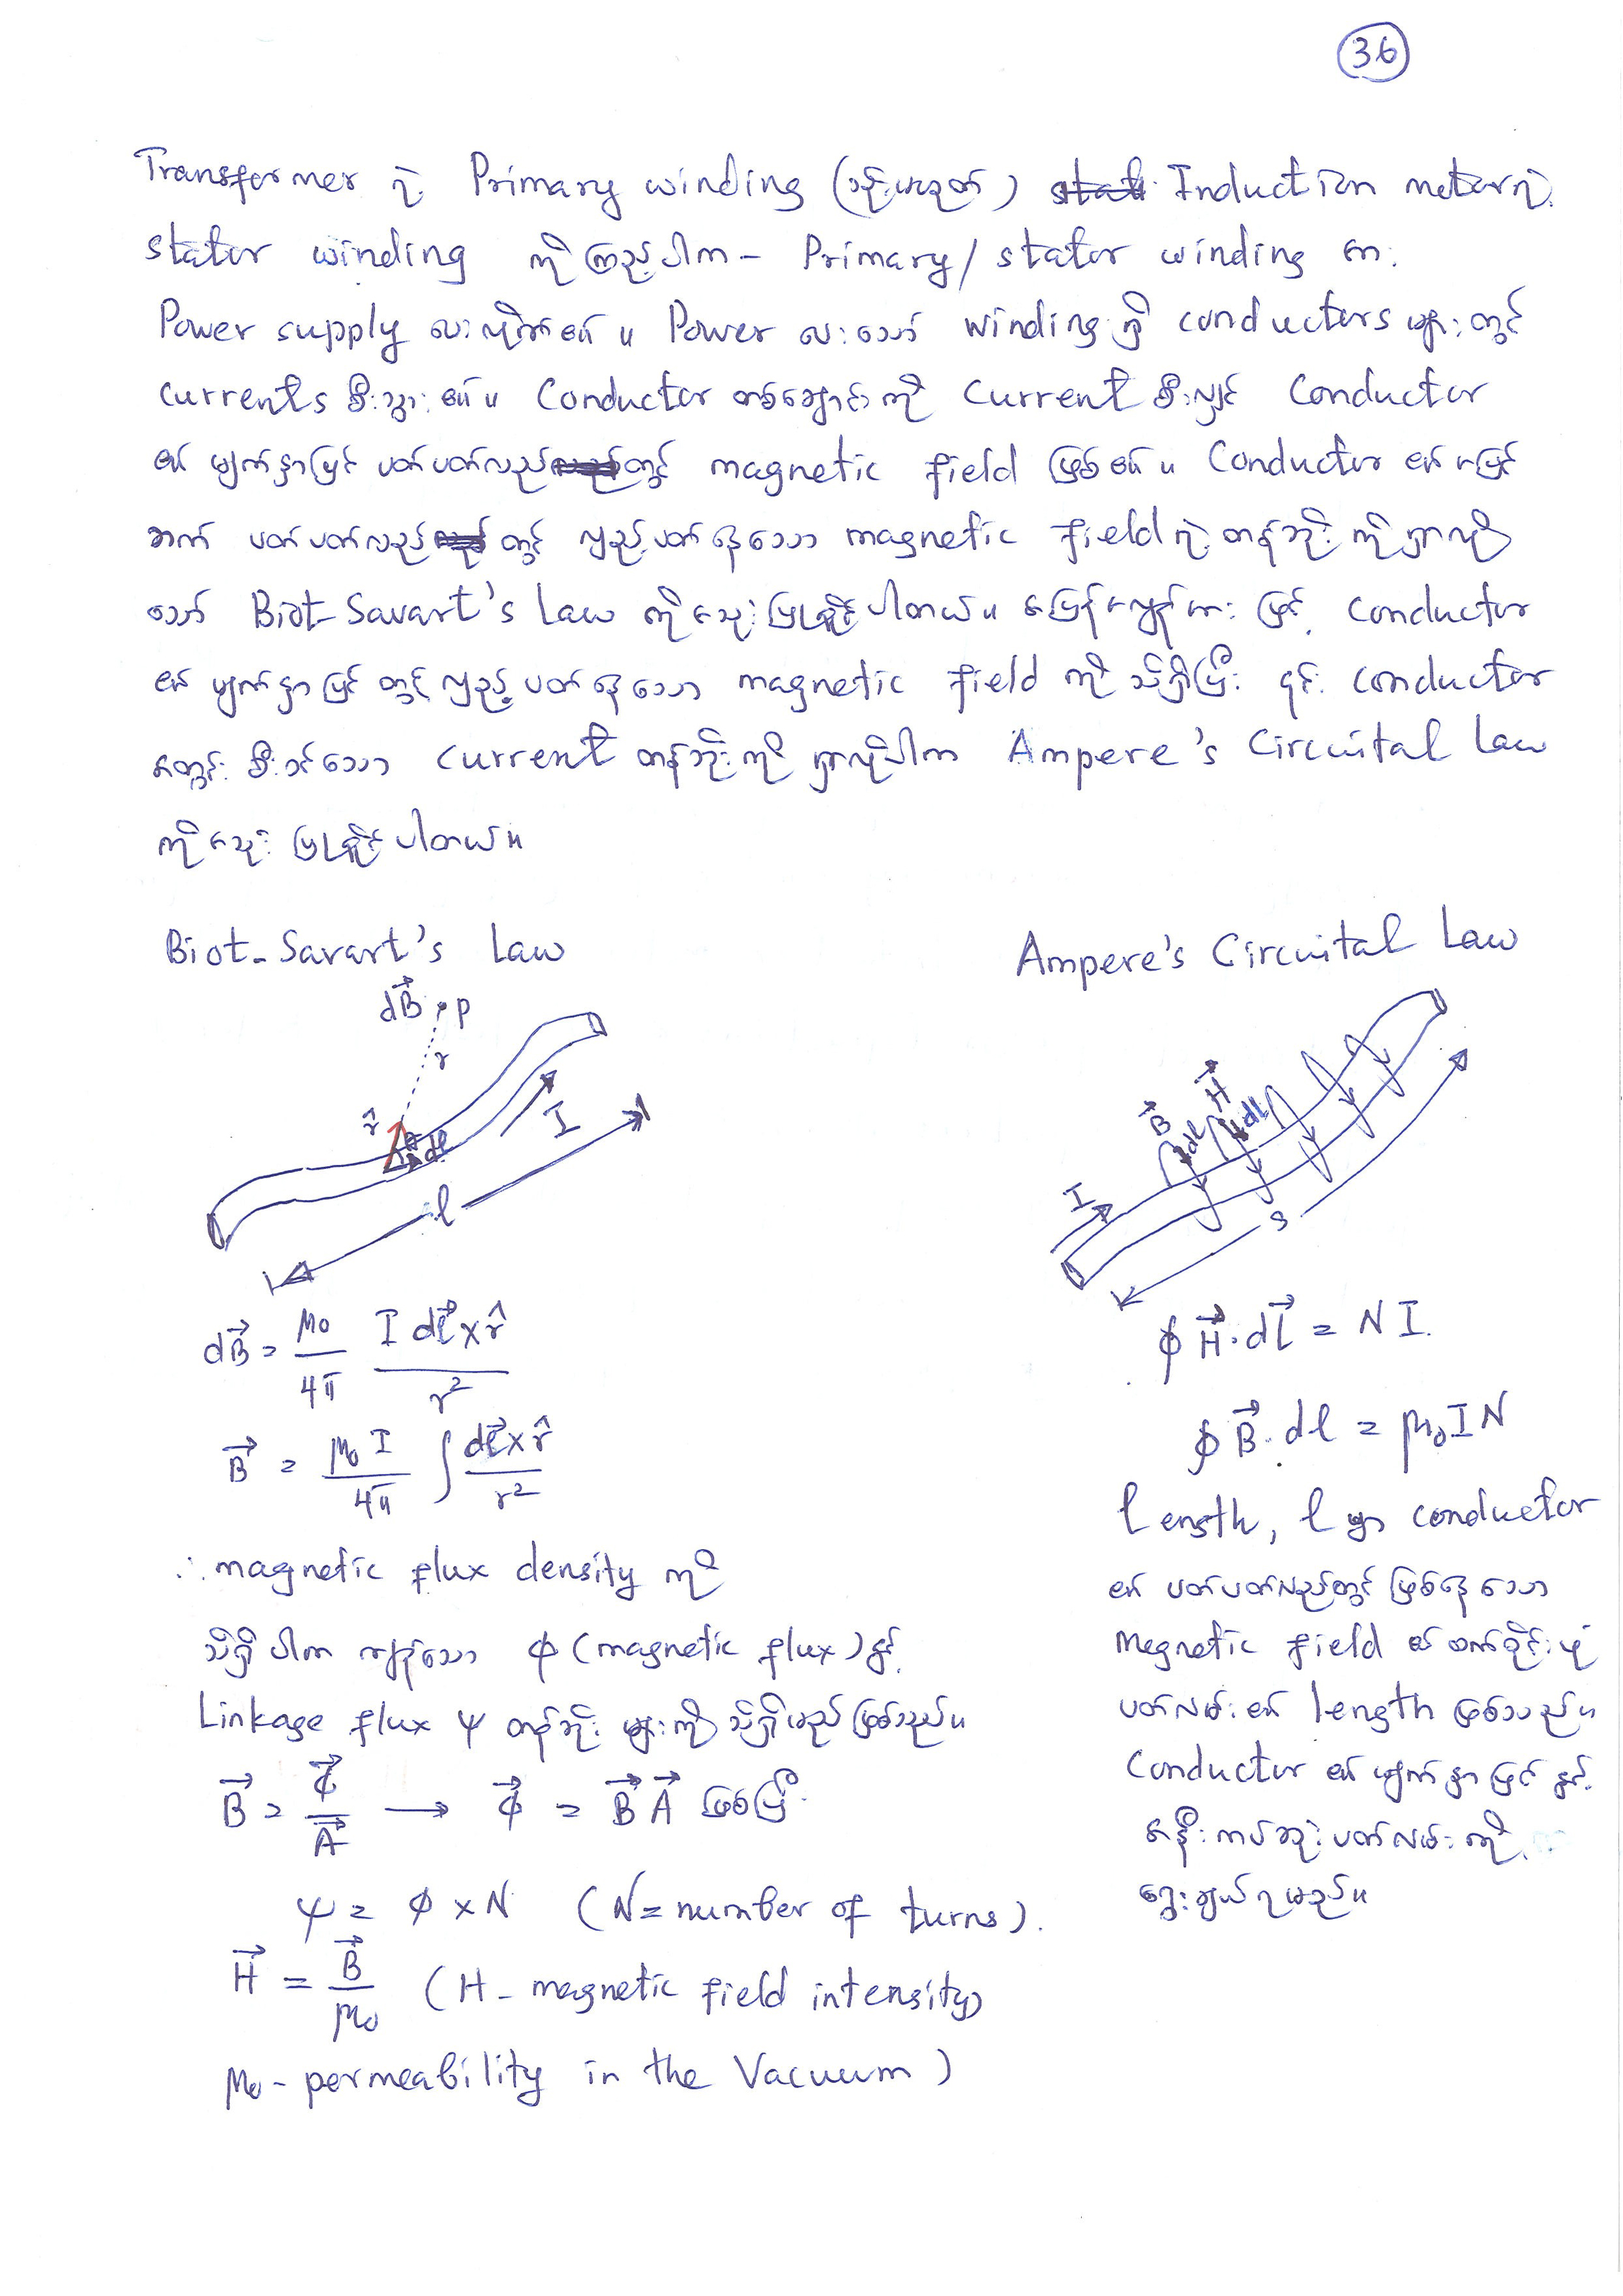 36
Transformer ရဲ့ Primary winding (သို့မဟုတ်) Induction motor ရဲ့
stator winding ကိုကြည့်ပါက - Primary/stator winding အား
Power supply ပေးလိုက်၏။ Power ပေးသော် winding ရှိ conductors များတွင်
currents စီးသွား၏။ Conductor တစ်ချောင်းကို current စီးလျှင် conductor
၏ မျက်နှာပြင် ပတ်ပတ်လည်တွင် magnetic field ဖြစ်၏။ Conductor ၏ အပြင်
ဘက် ပတ်ပတ်လည်တွင် လှည့်ပတ်နေသော magnetic field ရဲ့ တန်ဘိုးကိုရှာလို
သော် Biot-Savart's Law ကိုအသုံးပြုနိုင်ပါတယ်။ အပြန်အလှန်အားဖြင့် conductor
၏ မျက်နှာပြင်တွင် လှည့်ပတ်နေသော magnetic field ကို သိရှိပြီး ၎င်း conductor
အတွင်း စီးဝင်သော current တန်ဘိုးကို ရှာလိုပါက Ampere's Circuital Law
ကိုအသုံးပြုနိုင်ပါတယ်။
Biot-Savart's Law
dB⃗ P
r
r̂
θ dl
I
l
dB⃗ = μ₀/4π I dl⃗ × r̂/r²
B⃗ = μ₀ I/4π ∫ dl⃗ × r̂/r²
∴ magnetic flux density ကို
သိရှိပါက ကျန်သော φ (magnetic flux) နှင့်
Linkage flux ψ တန်ဘိုးများကို သိရှိမည်ဖြစ်သည်။
B⃗ = φ⃗/A⃗ → φ⃗ = B⃗ A⃗ ဖြစ်ပြီး
ψ = φ × N (N = number of turns).
H⃗ = B⃗/μ₀ (H - magnetic field intensity)
μ₀ - permeability in the Vacuum)
Ampere's Circuital Law
B⃗ dl H⃗ dl
I
s
∮ H⃗ · dl⃗ = N I.
∮ B⃗ · dl = μ₀ I N
length, l မှာ conductor
၏ ပတ်ပတ်လည်တွင် ဖြစ်နေသော
Megnetic field ၏ စက်ဝိုင်းပုံ
ပတ်လမ်း၏ length ဖြစ်သည်။
Conductor ၏ မျက်နှာပြင်နှင့်
အနီးကပ်ဆုံး ပတ်လမ်းကို
ရွေးချယ်ရမည်။